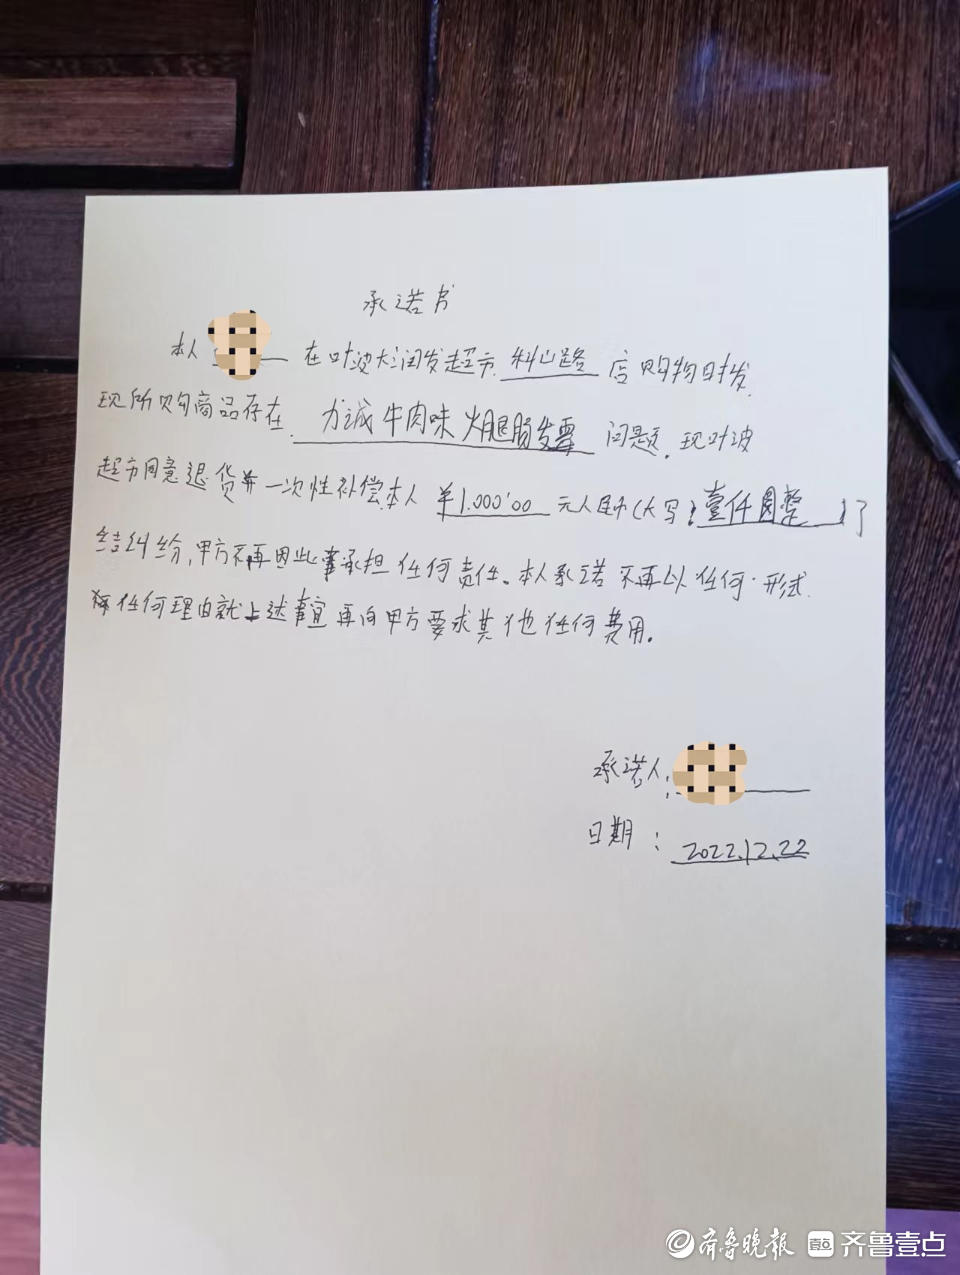 承诺书
本人 在叶波大润发超市 科山路 店购物时发
现所购商品存在 力诚牛肉味火腿肠发霉 问题,现叶波
超市同意退货并一次性补偿本人 ¥1.000'00 元人民币(大写:壹仟圆整 )了
结纠纷,甲方不再因此事承担任何责任。本人承诺不再以任何形式
任何理由就上述事宜再向甲方要求其他任何费用。
承诺人:
日期:2022.12.22
齐鲁晚报 齐鲁壹点